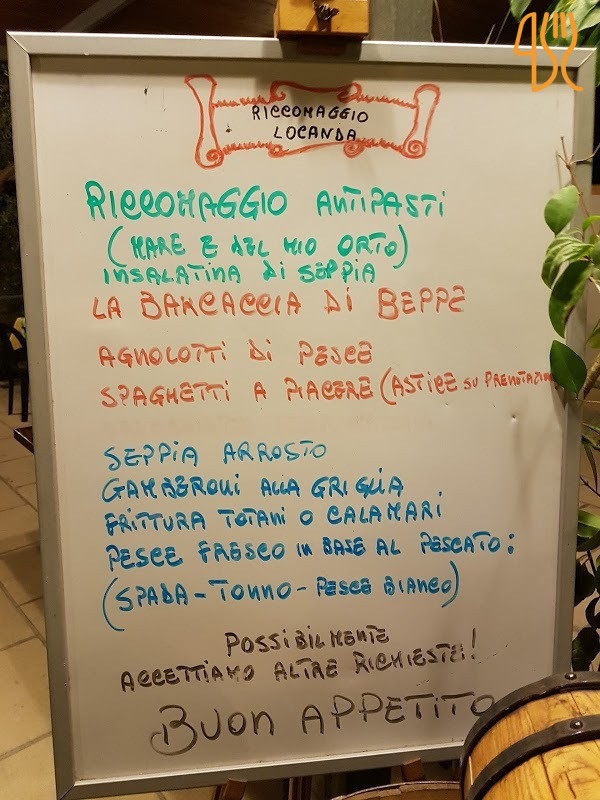 RICCOMAGGIO
LOCANDA
RICCOMAGGIO ANTIPASTI
(MARE E DEL MIO ORTO)
INSALATINA DI SEPPIA
LA BARCACCIA DI BEPPE
AGNOLOTTI DI PESCE
SPAGHETTI A PIACERE (ASTICE SU PRENOTAZION
SEPPIA ARROSTO
GAMBERONI ALLA GRIGLIA
FRITTURA TOTANI O CALAMARI
PESCE FRESCO IN BASE AL PESCATO:
(SPADA-TONNO-PESCE BIANCO)
POSSIBILMENTE
ACCETTIAMO ALTRE RICHIESTE!
BUON APPETITO